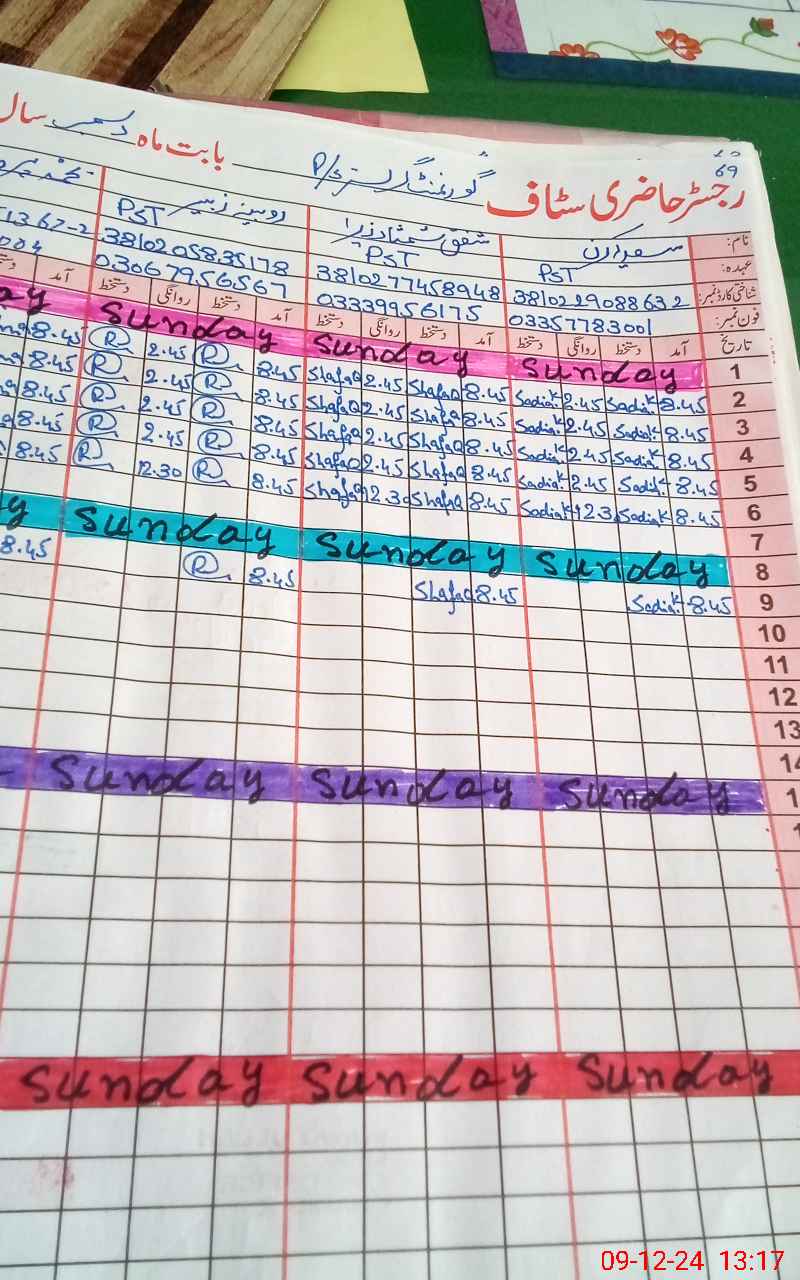 69
رجسٹر حاضری سٹاف گورنمنٹ گرلز P/S بابت ماہ دسمبر سال
نام: شفق شمشاد زہرا روبینہ زبیر
عہدہ: PST PST PST
شناختی کارڈ نمبر: 3810229088632 3810277458948 3810205835178
فون نمبر: 03357783001 03339956175 03067956567
تاریخ آمد دستخط روانگی دستخط آمد دستخط روانگی دستخط آمد دستخط روانگی دستخط آمد
1 Sunday Sunday Sunday
2 8.45 SadiaK 2.45 SadiaK 8.45 ShafaQ 2.45 ShafaQ 8.45 R 2.45 R 8.45
3 8.45 SadiaK 2.45 SadiaK 8.45 ShafaQ 2.45 ShafaQ 8.45 R 2.45 R 8.45
4 8.45 SadiaK 2.45 SadiaK 8.45 ShafaQ 2.45 ShafaQ 8.45 R 2.45 R 8.45
5 8.45 SadiaK 2.45 SadiaK 8.45 ShafaQ 2.45 ShafaQ 8.45 R 2.45 R 8.45
6 8.45 SadiaK 12.3 SadiaK 8.45 ShafaQ 12.30 ShafaQ 8.45 R 12.30 R 8.45
7
8 Sunday Sunday Sunday
9 8.45 SadiaK 8.45 ShafaQ 8.45 R 8.45
10
11
12
13
14
1 Sunday Sunday Sunday
1
Sunday Sunday Sunday
09-12-24 13:17